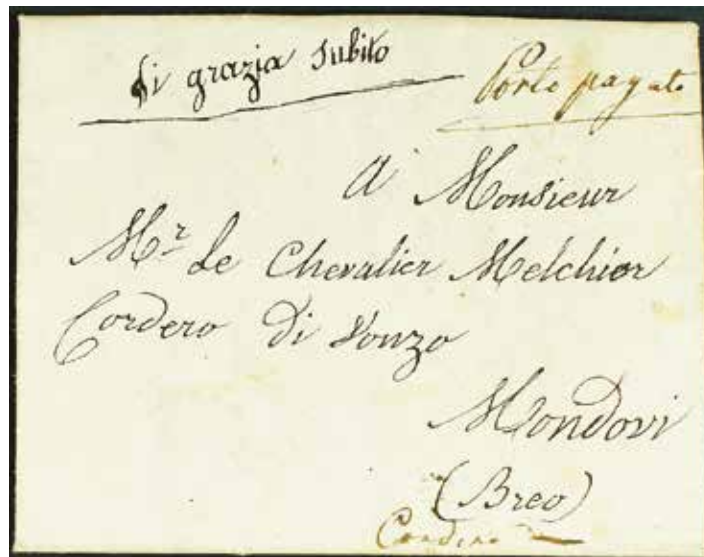 di grazia subito
Porto pagato
A Monsieur
Mr. le Chevalier Melchior
Cordero di Vonzo
Mondovi
(Breo)